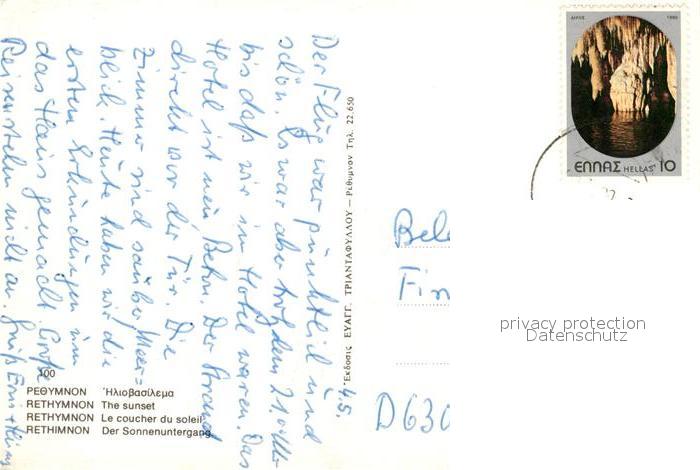 Der Flug war pünktlich und
schön. Es war aber trotzdem 21 Uhr
bis daß wir im Hotel waren. Das
Hotel ist mein Beton. Der Strand
direkt vor der Tür. Die
Zimmer sind sauber, Meer=
blick. Heute haben wir die
ersten Erkundungen um
das Haus gemacht. Große
Reisen stehen nicht an. Gruß Ernst
4.5.
Ἔκδοσις ΕΥΑΓΓ. ΤΡΙΑΝΤΑΦΥΛΛΟΥ — Ρέθυμνον Τηλ. 22.650
100
ΡΕΘΥΜΝΟΝ Ἡλιοβασίλεμα
RETHYMNON The sunset
RETHYMNON Le coucher du soleil
RETHIMNON Der Sonnenuntergang
1980
ΕΛΛΑΣ HELLAS 10
Bele
Fin
D630
privacy protection
Datenschutz